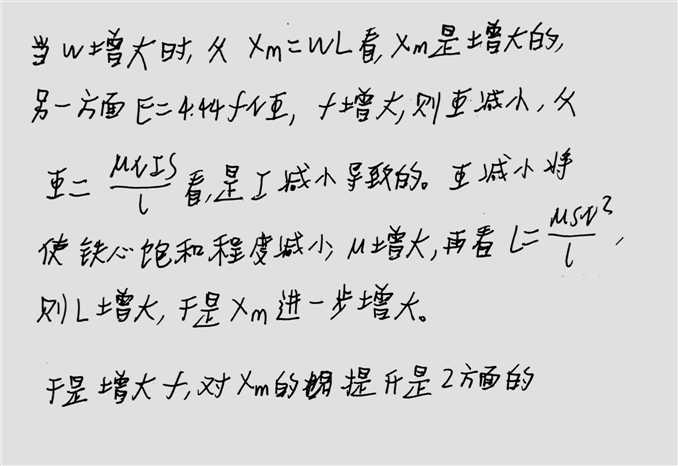 当w增大时,从 Xm=WL看,Xm是增大的,
另一方面E=4.44fNΦ, f增大,则Φ减小,从
Φ=μNIS/l 看,是I减小导致的。Φ减小将
使铁心饱和程度减小,μ增大,再看L=μSN²/l,
则L增大,于是Xm进一步增大。
于是增大f,对Xm的提升是2方面的